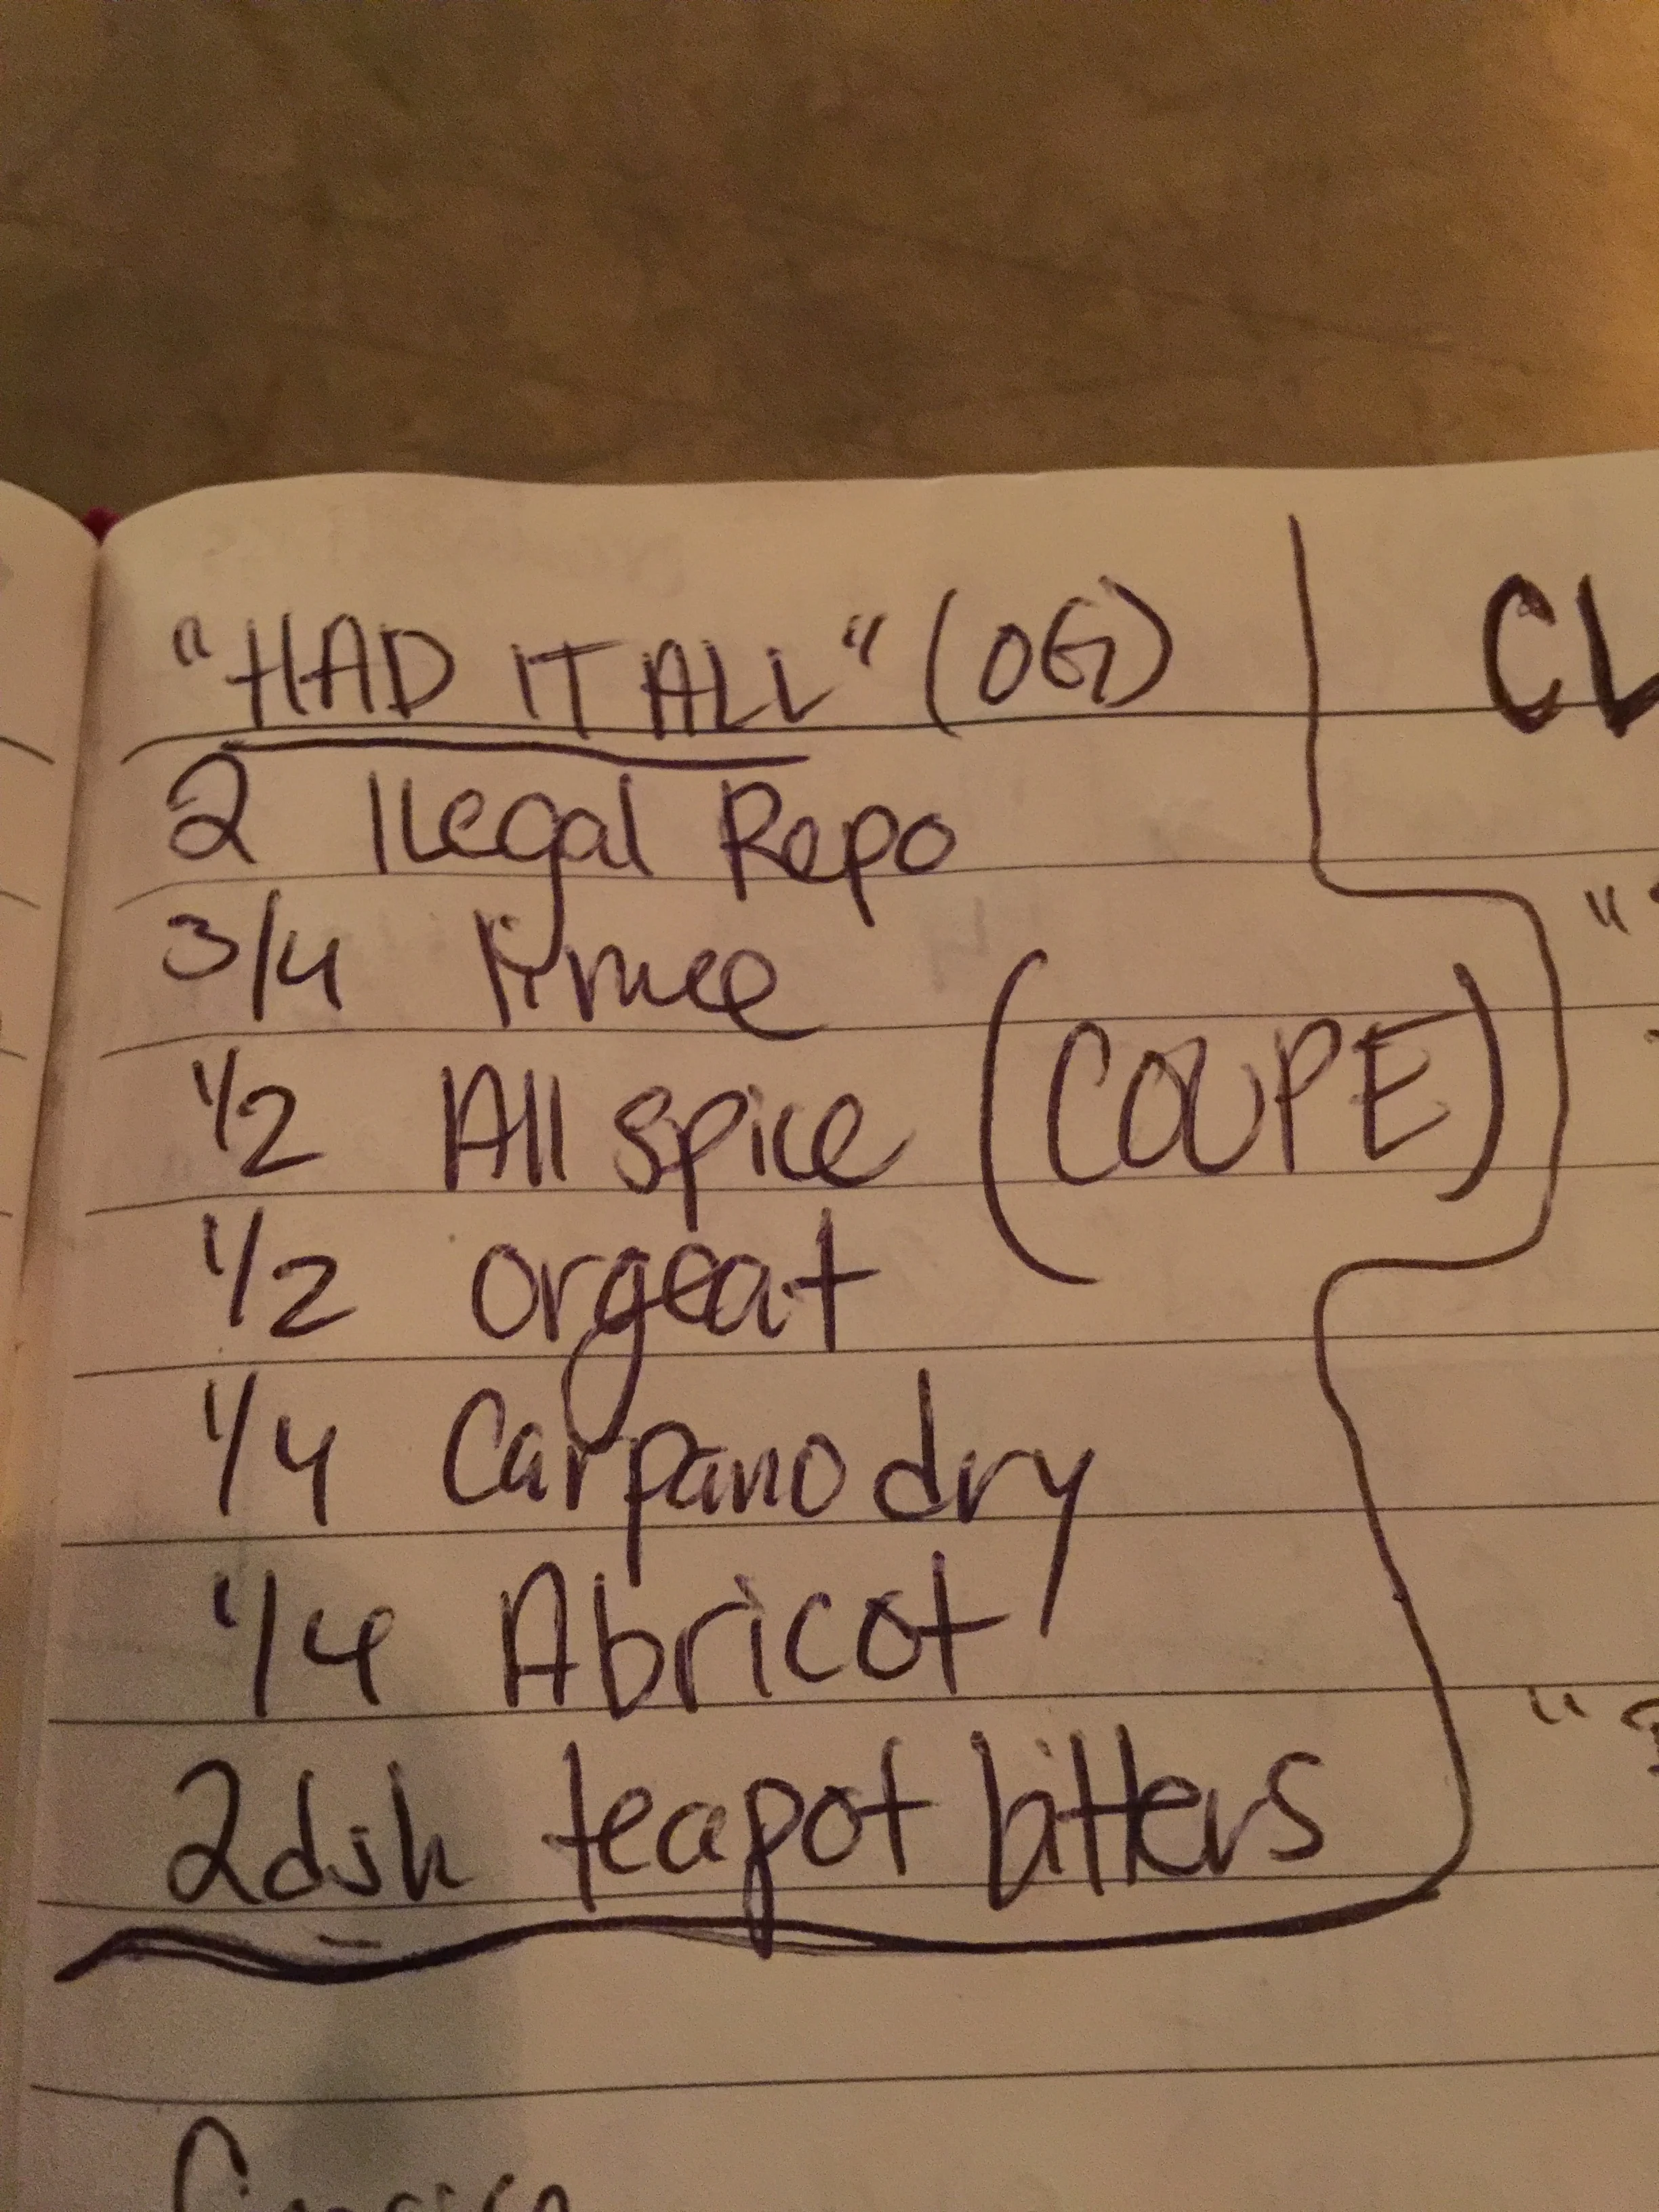 "HAD IT ALL" (OG)
CL
2 Ilegal Repo
3/4 lime
1/2 All spice (COUPE)
1/2 orgeat
1/4 Carpano dry
1/4 Abricot
2dsh teapot bitters